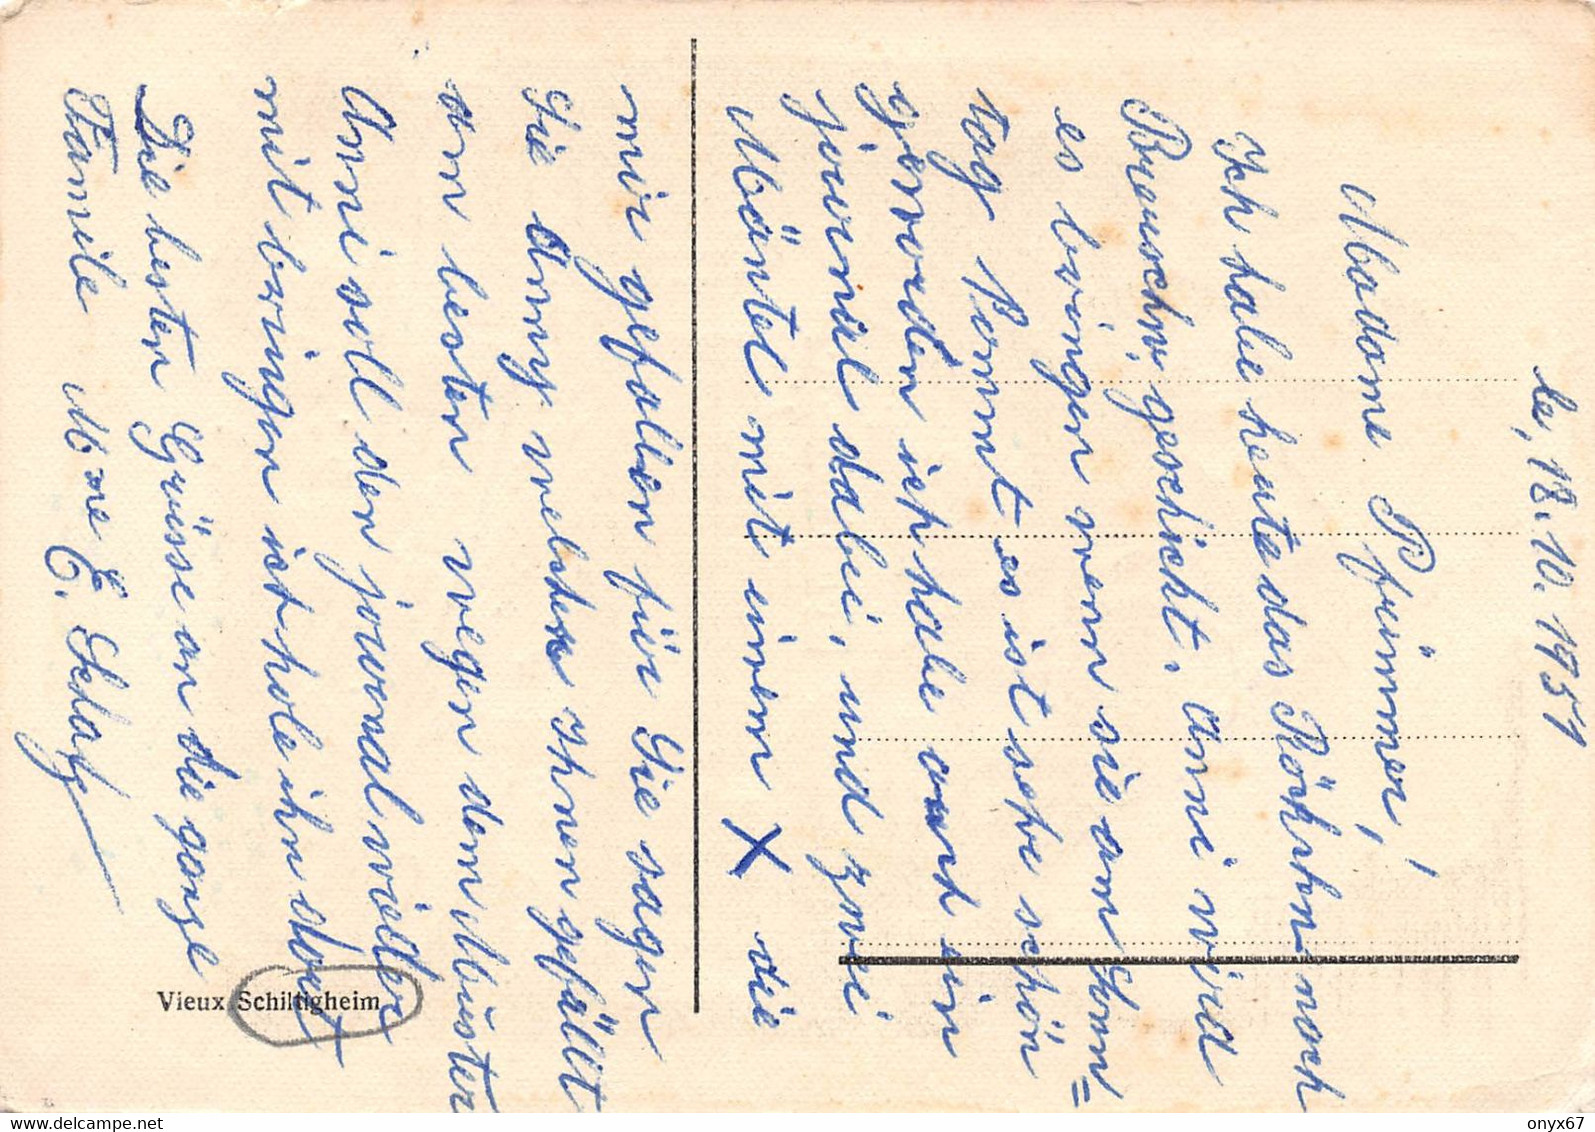 le, 18. 10. 1951
Madame Pfrimmer,!
Ich habe heute das Röckchen nach
Brauschw, geschickt. Anni wird
es bringen wenn sie am Sonn=
tag kommt es ist sehr schön
geworden ich habe auch ein
journal dabei, und zwei
Mäntel mit einem X die
mir gefallen für Sie sagen
Sie Anny welcher Ihnen gefällt
am besten wegen dem Muster
Anni soll den journal wieder
mit bringen ich hole ihn dort
Die besten Grüsse an die ganze
Familie Mme E. Schatz
Vieux Schiltigheim
ansichtskarten-center.de
onyx67